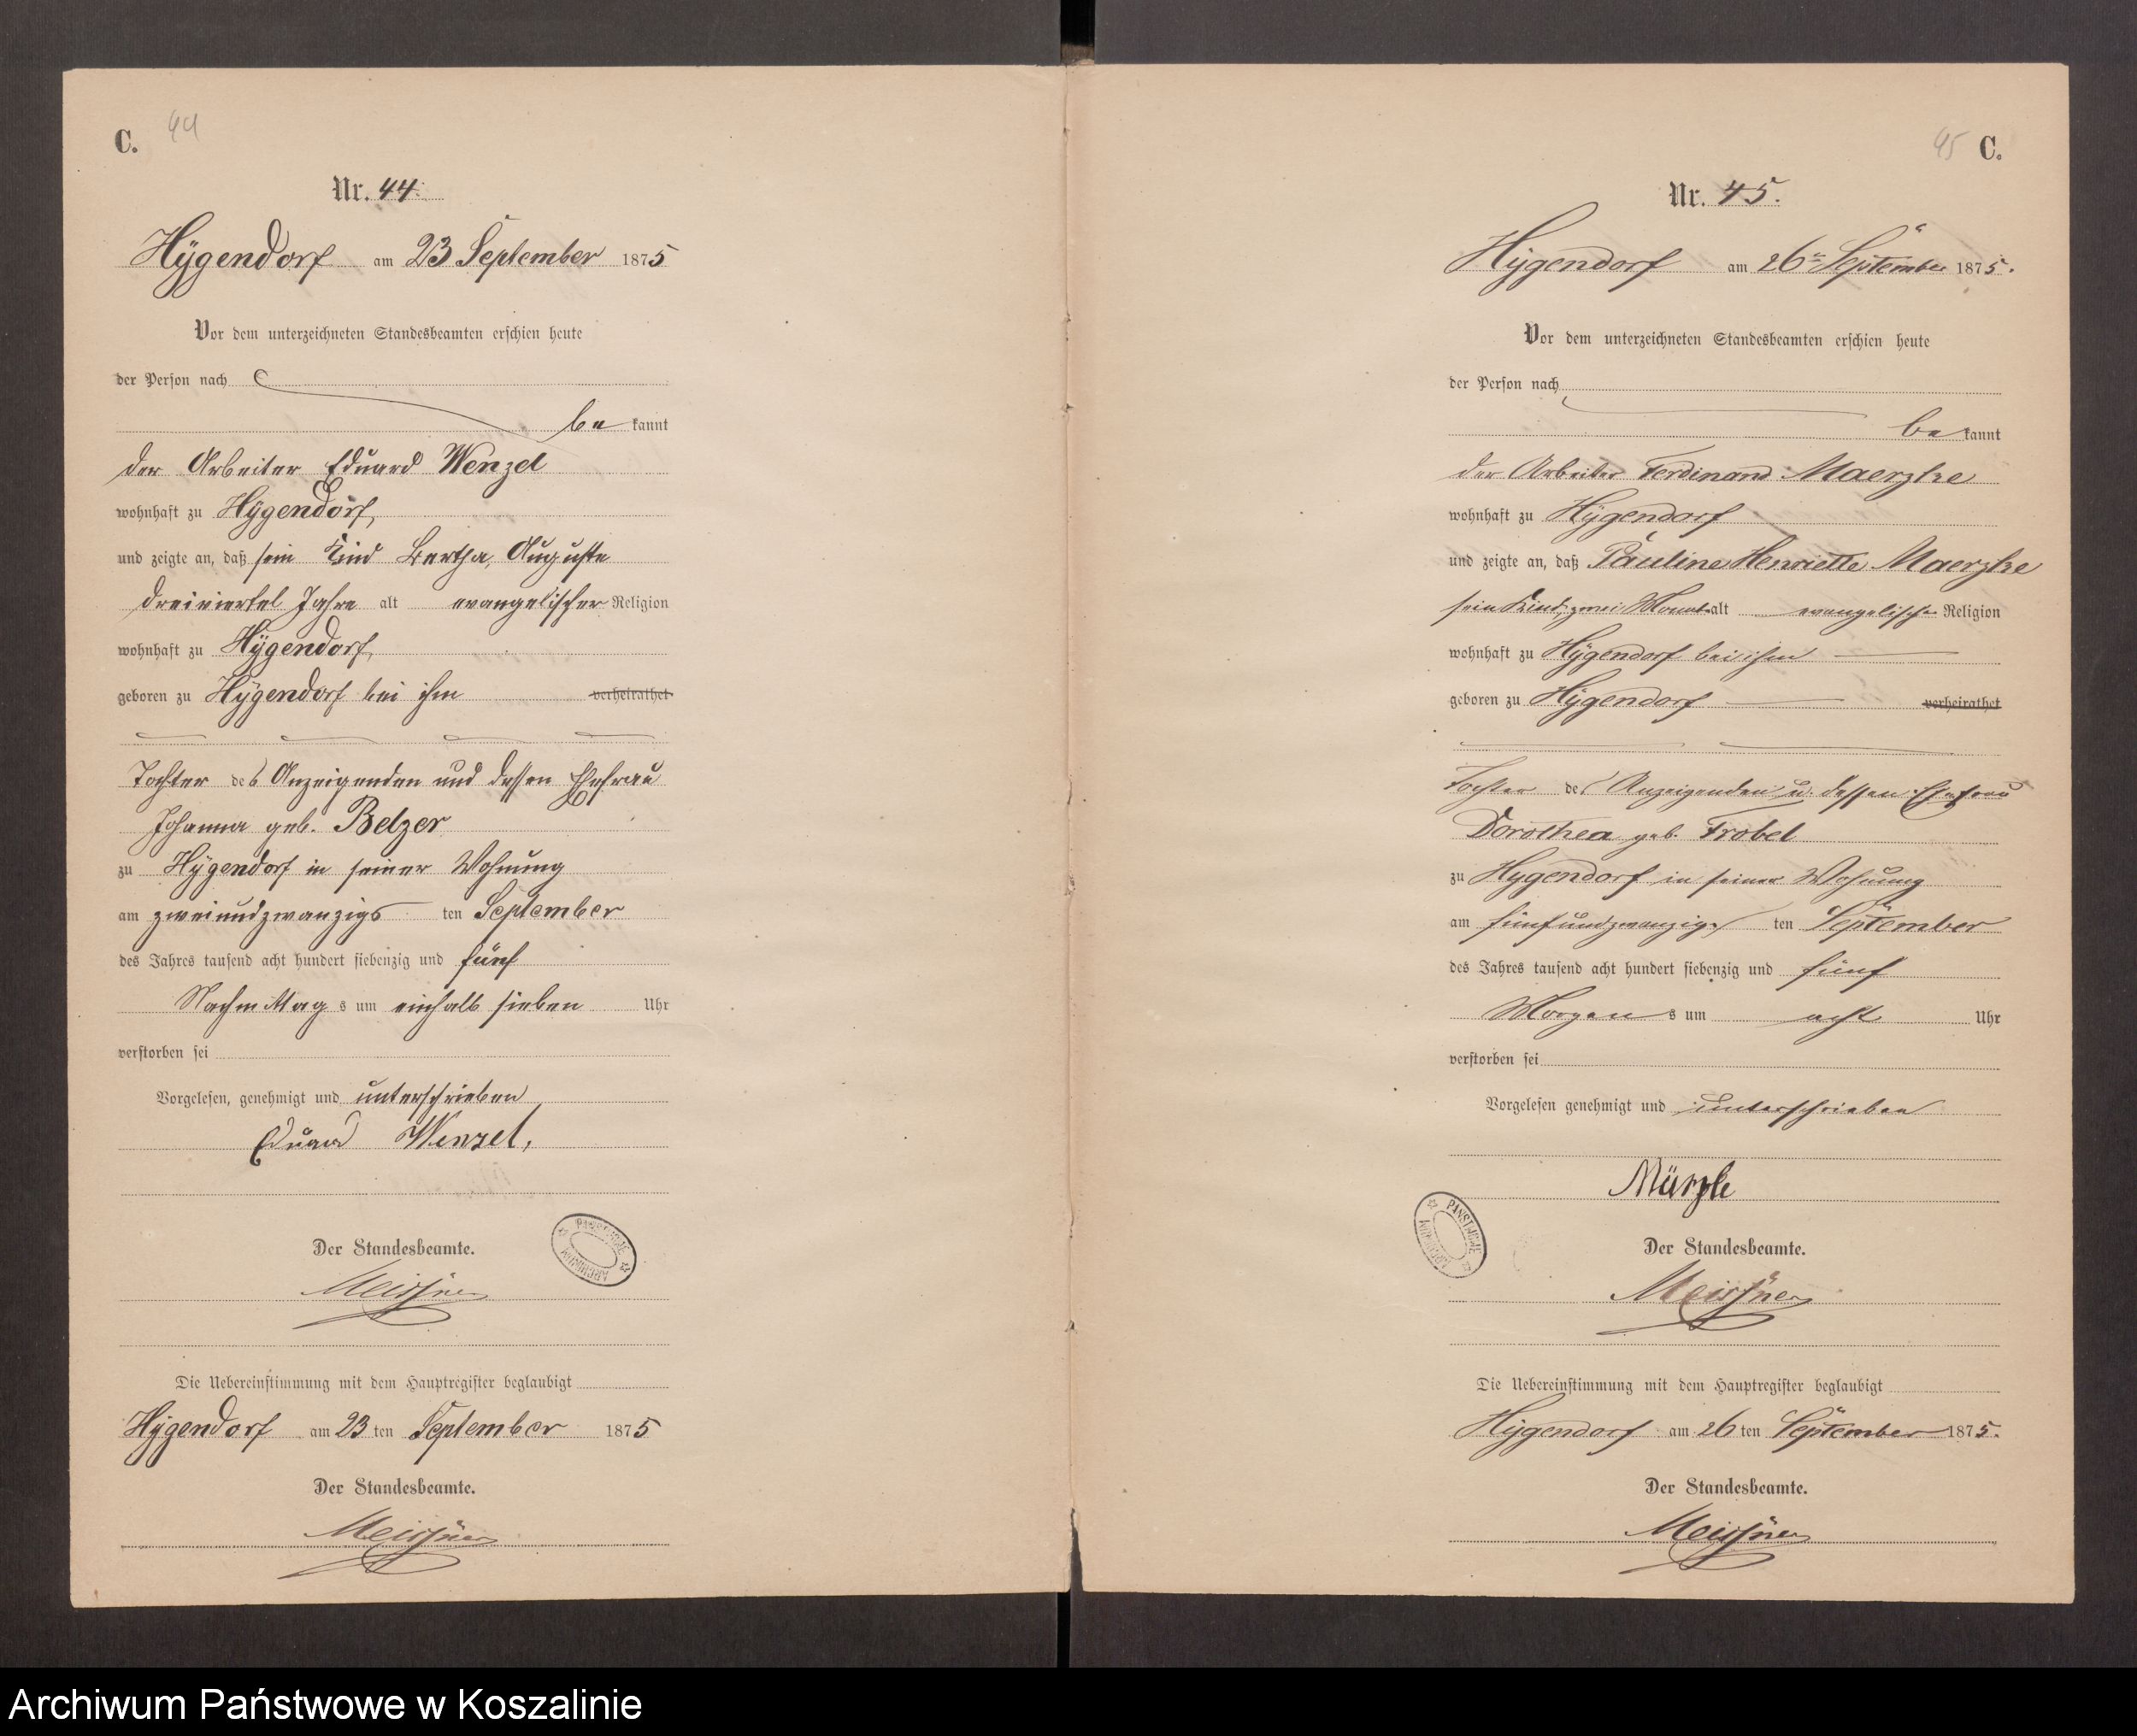 C. 44
Nr. 44.
Hÿgendorf am 23 September 1875
Vor dem unterzeichneten Standesbeamten erschien heute
der Person nach
be kannt
der Arbeiter Eduard Wenzel
wohnhaft zu Hÿgendorf,
und zeigte an, daß sein Kind Bertha, Auguste
dreiviertel Jahre alt evangelischer Religion
wohnhaft zu Hÿgendorf,
geboren zu Hÿgendorf bei ihm verheirathet
Tochter des Anzeigenden und dessen Ehefrau
Johanna geb. Belzer
zu Hÿgendorf in seiner Wohnung
am zweiundzwanzigs ten September
des Jahres tausend acht hundert siebenzig und fünf
Nachmittag s um einhalb sieben Uhr
verstorben sei
Vorgelesen, genehmigt und unterschrieben
Eduard Wenzel,
Der Standesbeamte.
Meissner
Die Uebereinstimmung mit dem Hauptregister beglaubigt
Hÿgendorf am 23 ten September 1875
Der Standesbeamte.
Meissner
ARCHIWUM PAŃSTWOWE
45 C.
Nr. 45.
Hÿgendorf am 26 September 1875.
Vor dem unterzeichneten Standesbeamten erschien heute
der Person nach
be kannt
der Arbeiter Ferdinand Maerzke
wohnhaft zu Hÿgendorf
und zeigte an, daß Pauline Henriette Maerzke
sein Kind, zwei Monat alt evangelischer Religion
wohnhaft zu Hÿgendorf bei ihm
geboren zu Hÿgendorf verheirathet
Tochter des Anzeigenden u. dessen Ehefrau
Dorothea geb. Trobel
zu Hÿgendorf in seiner Wohnung
am fünfundzwanzigs ten September
des Jahres tausend acht hundert siebenzig und fünf
Morgen s um acht Uhr
verstorben sei
Vorgelesen genehmigt und unterschrieben
Märzke
Der Standesbeamte.
Meissner
Die Uebereinstimmung mit dem Hauptregister beglaubigt
Hÿgendorf am 26 ten September 1875.
Der Standesbeamte.
Meissner
ARCHIWUM PAŃSTWOWE
Archiwum Państwowe w Koszalinie